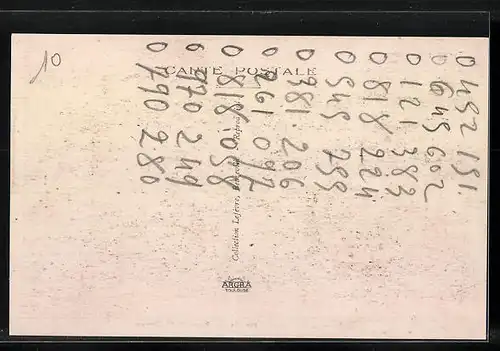 10
CARTE POSTALE
0 452 191.
0 645 602
0 121 383
0 818 224
0 545 755
0 981. 206
0 261 092
0 818. 058
6 970 249
0 790 280
Collection Lefevre,
ARGRA
TOULOUSE